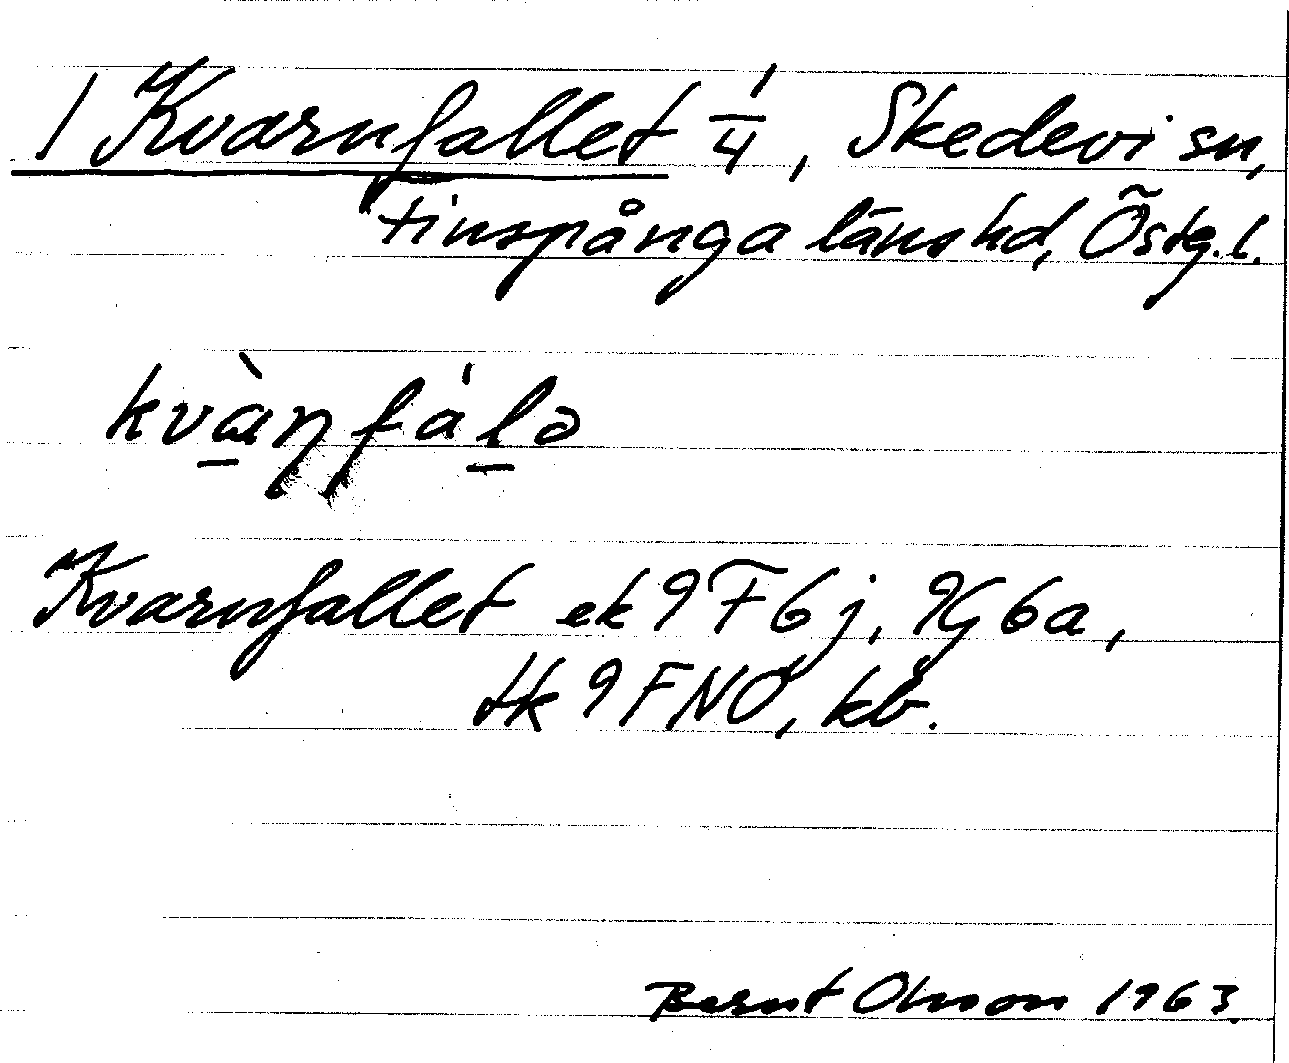 1 Kvarnfallet 1/4, Skedevi sn,
Finspånga läns hd, Östg. l.
kvànfálə
Kvarnfallet ek 9F6j, 9G6a,
tk 9FNO, kb.
Bernt Olsson 1963.